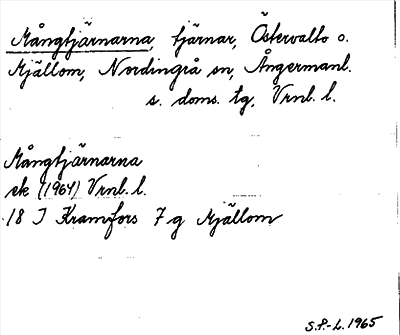 Mångtjärnarna, tjärnar, Östervalto o.
Mjällom, Nordingrå sn, Ångermanl.
s. doms. tg, Vrnl. l.
Mångtjärnarna
ek (1964) Vrnl. l.
18 I Kramfors 7 g Mjällom
S.P.-L. 1965